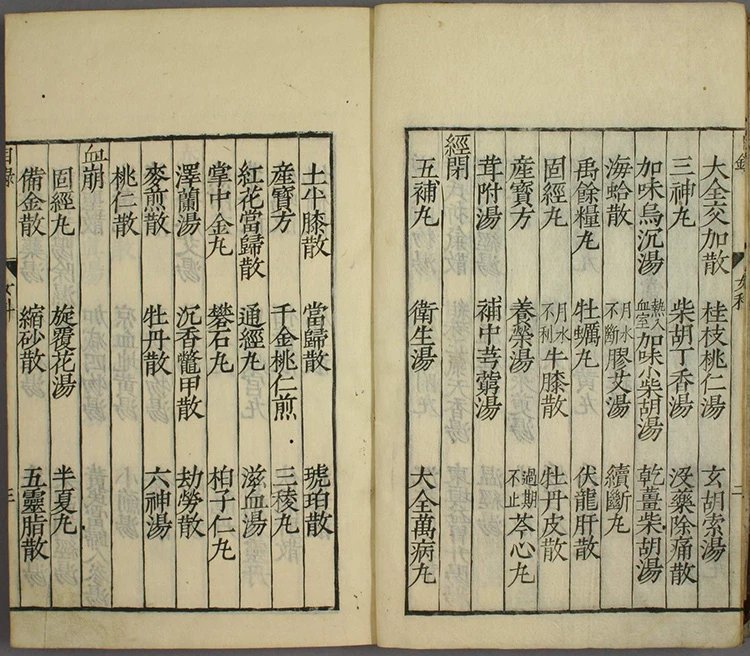 大全交加散 桂枝桃仁湯 玄胡索湯
三神丸 柴胡丁香湯 沒藥除痛散
加味烏沉湯 熱入血室加味小柴胡湯 乾薑柴胡湯
海蛤散 月水不斷膠艾湯 續斷丸
禹餘糧丸 牡蠣丸 伏龍肝散
固經丸 月水不利牛膝散 牡丹皮散
產寶方 養榮湯 過期不止芩心丸
茸附湯 補中芎藭湯
經閉
五補丸 衛生湯 大全萬病丸
女科
二
土牛膝散 當歸散 琥珀散
產寶方 千金桃仁煎 三稜丸
紅花當歸散 通經丸 滋血湯
掌中金丸 礬石丸 柏子仁丸
澤蘭湯 沉香鱉甲散 劫勞散
麥煎散 牡丹散 六神湯
桃仁散
血崩
固經丸 旋覆花湯 半夏丸
備金散 縮砂散 五靈脂散
目錄 女科 三